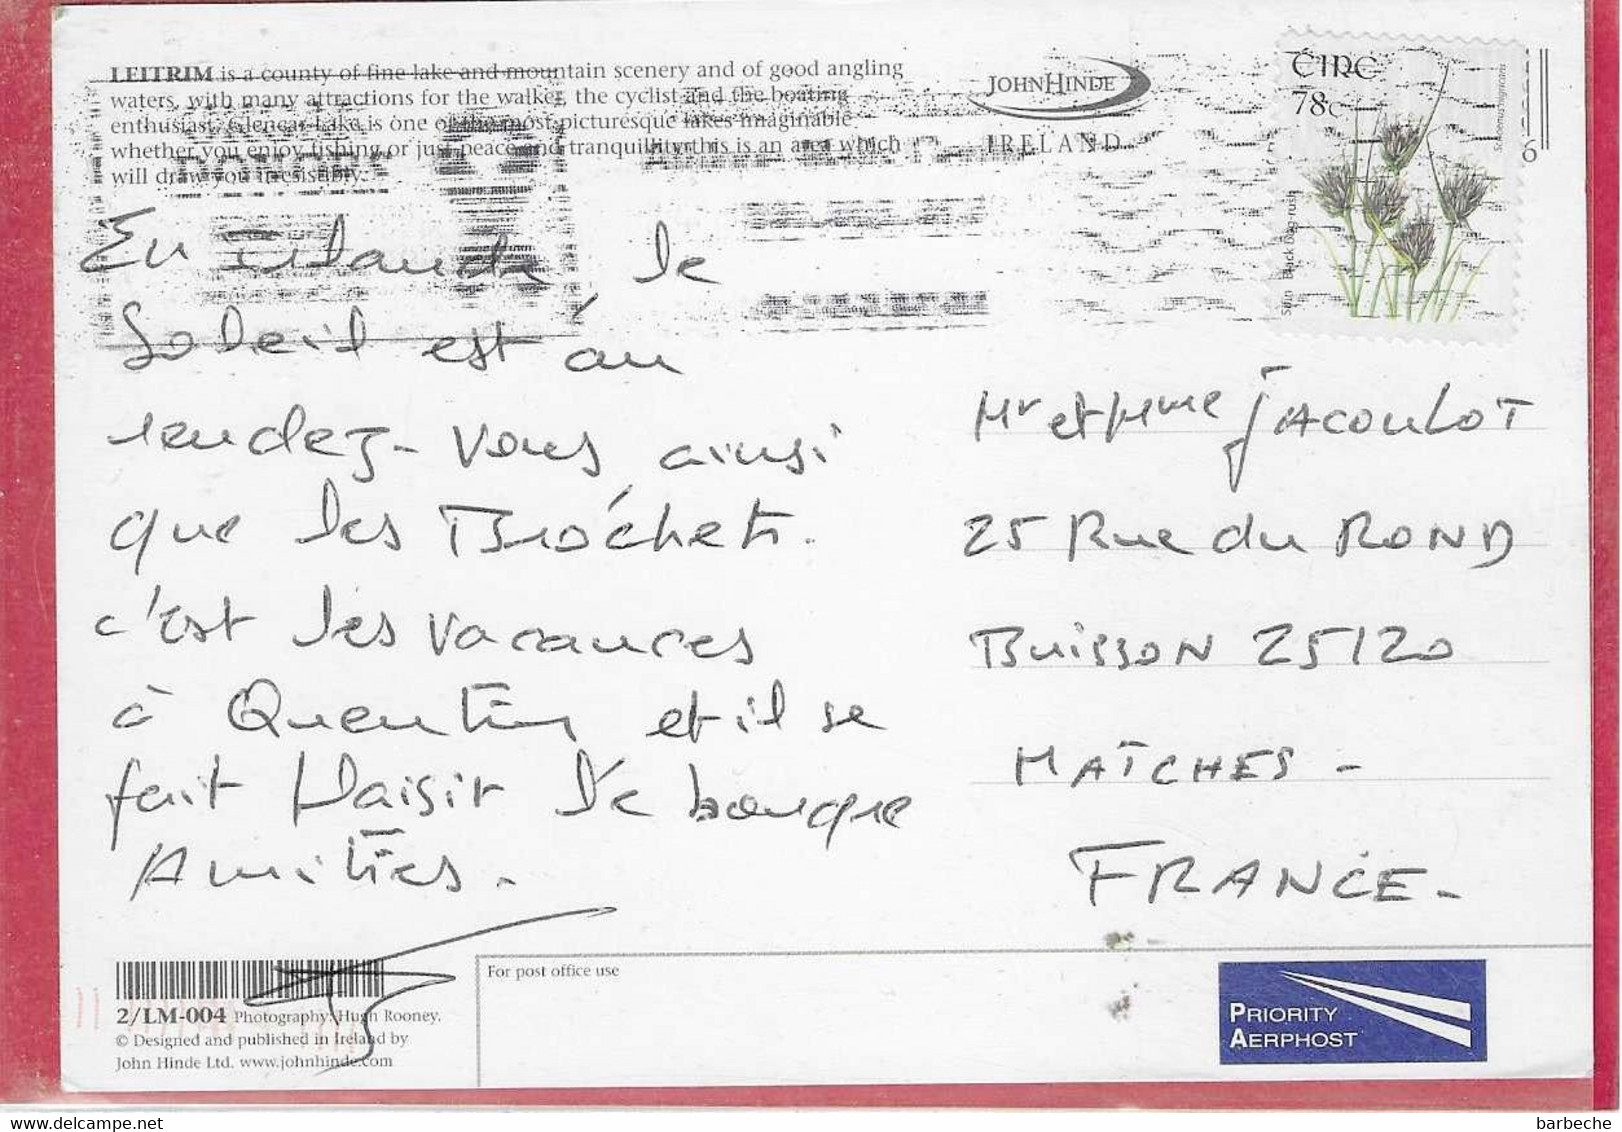 LEITRIM is a county of fine lake and mountain scenery and of good angling
waters, with many attractions for the walker, the cyclist and the boating
enthusiast. Glencar Lake is one of the most picturesque lakes imaginable
whether you enjoy fishing or just peace and tranquillity this is an area which
will draw you irresistibly.
JOHN HINDE
IRELAND
ÉIRE
78c
Black bog-rush
Schoenus nigricans
6
En Irlande le
Soleil est au
rendez-vous ainsi
que les Brochets.
c'est les vacances
à Quentin et il se
fait Plaisir
Amitiés.
Mr et Mme JACOULOT
25 Rue du ROND
BUISSON 25120
MAÎCHES -
FRANCE -
2/LM-004 Photography: Hugh Rooney.
© Designed and published in Ireland by
John Hinde Ltd. www.johnhinde.com
For post office use
PRIORITY
AERPHOST
barbeche